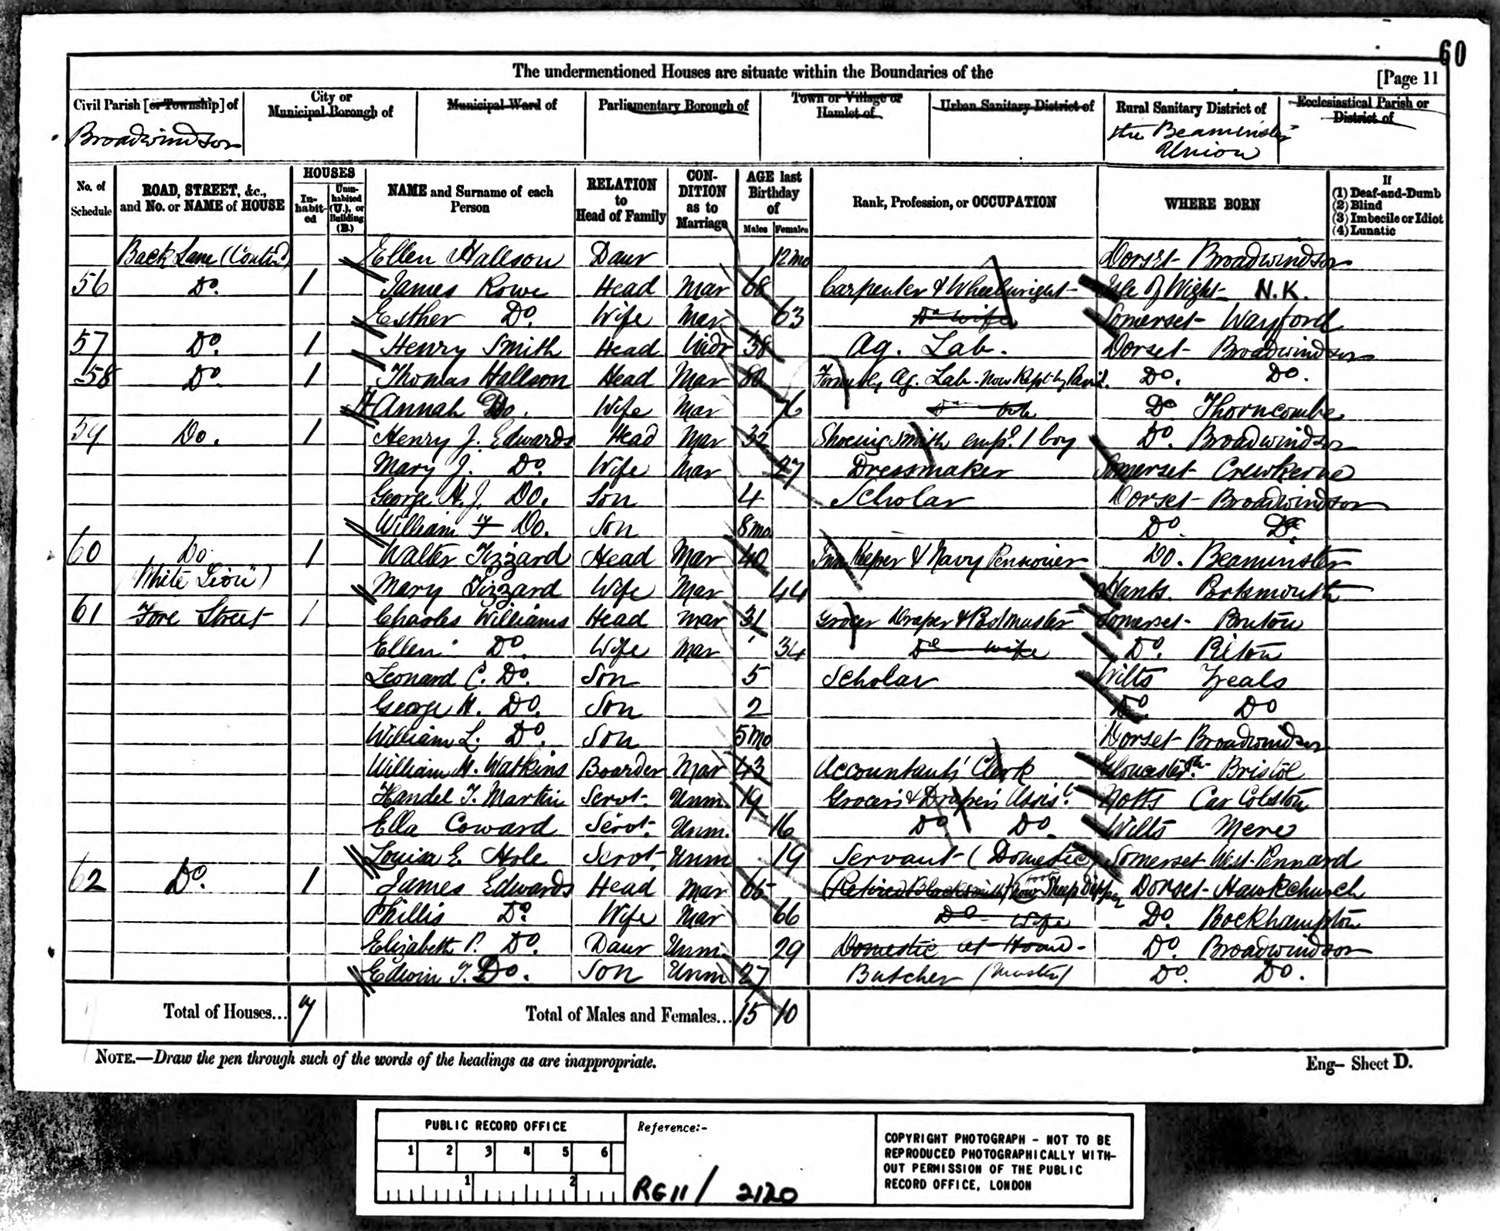 60
The undermentioned Houses are situate within the Boundaries of the
[Page 11
Civil Parish [or Township] of
Broadwindsor
City or
Municipal Borough of
Municipal Ward of
Parliamentary Borough of
Town or Village or
Hamlet of
Urban Sanitary District of
Rural Sanitary District of
the Beaminster
Union
Ecclesiastical Parish or
District of
No. of
Schedule
ROAD, STREET, &c.,
and No. or NAME of HOUSE
HOUSES
In-
habit-
ed
Unin-
habited
(U.), or
Building
(B.)
NAME and Surname of each
Person
RELATION
to
Head of Family
CON-
DITION
as to
Marriage
AGE last
Birthday
of
Males Females
Rank, Profession, or OCCUPATION
WHERE BORN
If
(1) Deaf-and-Dumb
(2) Blind
(3) Imbecile or Idiot
(4) Lunatic
Back Lane (Contind) Ellen Hallson Daur 12mo Dorset Broadwindsor
56 Do. 1 James Rowe Head Mar 68 Carpenter & Wheelwright Isle of Wight N.K.
Esther Do. Wife Mar 63 Do Wife Somerset Wayford
57 Do. 1 Henry Smith Head Widr 38 Ag. Lab. Dorset Broadwindsor
58 Do. 1 Thomas Hallson Head Mar 80 Ag. Lab. Now Kept by Do. Do.
Hannah Do. Wife Mar 76 Do Thorncombe
59 Do. 1 Henry J. Edwards Head Mar 32 Shoeing Smith emp. 1 boy Do. Broadwindsor
Mary J. Do. Wife Mar 27 Dressmaker Somerset Crewkerne
George H. J. Do. Son 4 Scholar Dorset Broadwindsor
William Do. Son 8mo Do. Do.
60 Do. 1 Walter Fizzard Head Mar 40 Inn Keeper & Navy Pensioner Do. Beaminster
(White Lion) Mary Fizzard Wife Mar 44 Hants. Portsmouth
61 Fore Street 1 Charles Williams Head Mar 31 Grocer Draper & Postmaster Somerset Bruton
Ellen Do. Wife Mar 34 Do wife Do. Pilton
Leonard C. Do. Son 5 Scholar Wilts Zeals
George H. Do. Son 2 Do Do
William L. Do. Son 5mo Dorset Broadwindsor
William H. Watkins Boarder Mar 43 Accountants' Clerk Gloucester Bristol
Handel T. Martin Servt. Unm. 19 Grocer's & Draper's Assist. Notts Car Colston
Ella Coward Servt. Unm. 16 Do Do. Wilts Mere
Louisa E. Hole Servt. Unm 19 Servant (Domestic) Somerset West Pennard
62 Do. 1 James Edwards Head Mar 65 (Retired Blacksmith) now Sheep Dipper Dorset Hawkchurch
Phillis Do. Wife Mar 66 Do Wife Do. Bockhampton
Elizabeth P. Do. Daur Unm 29 Domestic at Home Do. Broadwindsor
Edwin T. Do. Son Unm 27 Butcher (Master) Do. Do.
Total of Houses... 7
Total of Males and Females... 15 10
NOTE.—Draw the pen through such of the words of the headings as are inappropriate.
Eng– Sheet D.
PUBLIC RECORD OFFICE
1 2 3 4 5 6
1 2
Reference:-
RG 11 / 2120
COPYRIGHT PHOTOGRAPH - NOT TO BE
REPRODUCED PHOTOGRAPHICALLY WITH-
OUT PERMISSION OF THE PUBLIC
RECORD OFFICE, LONDON